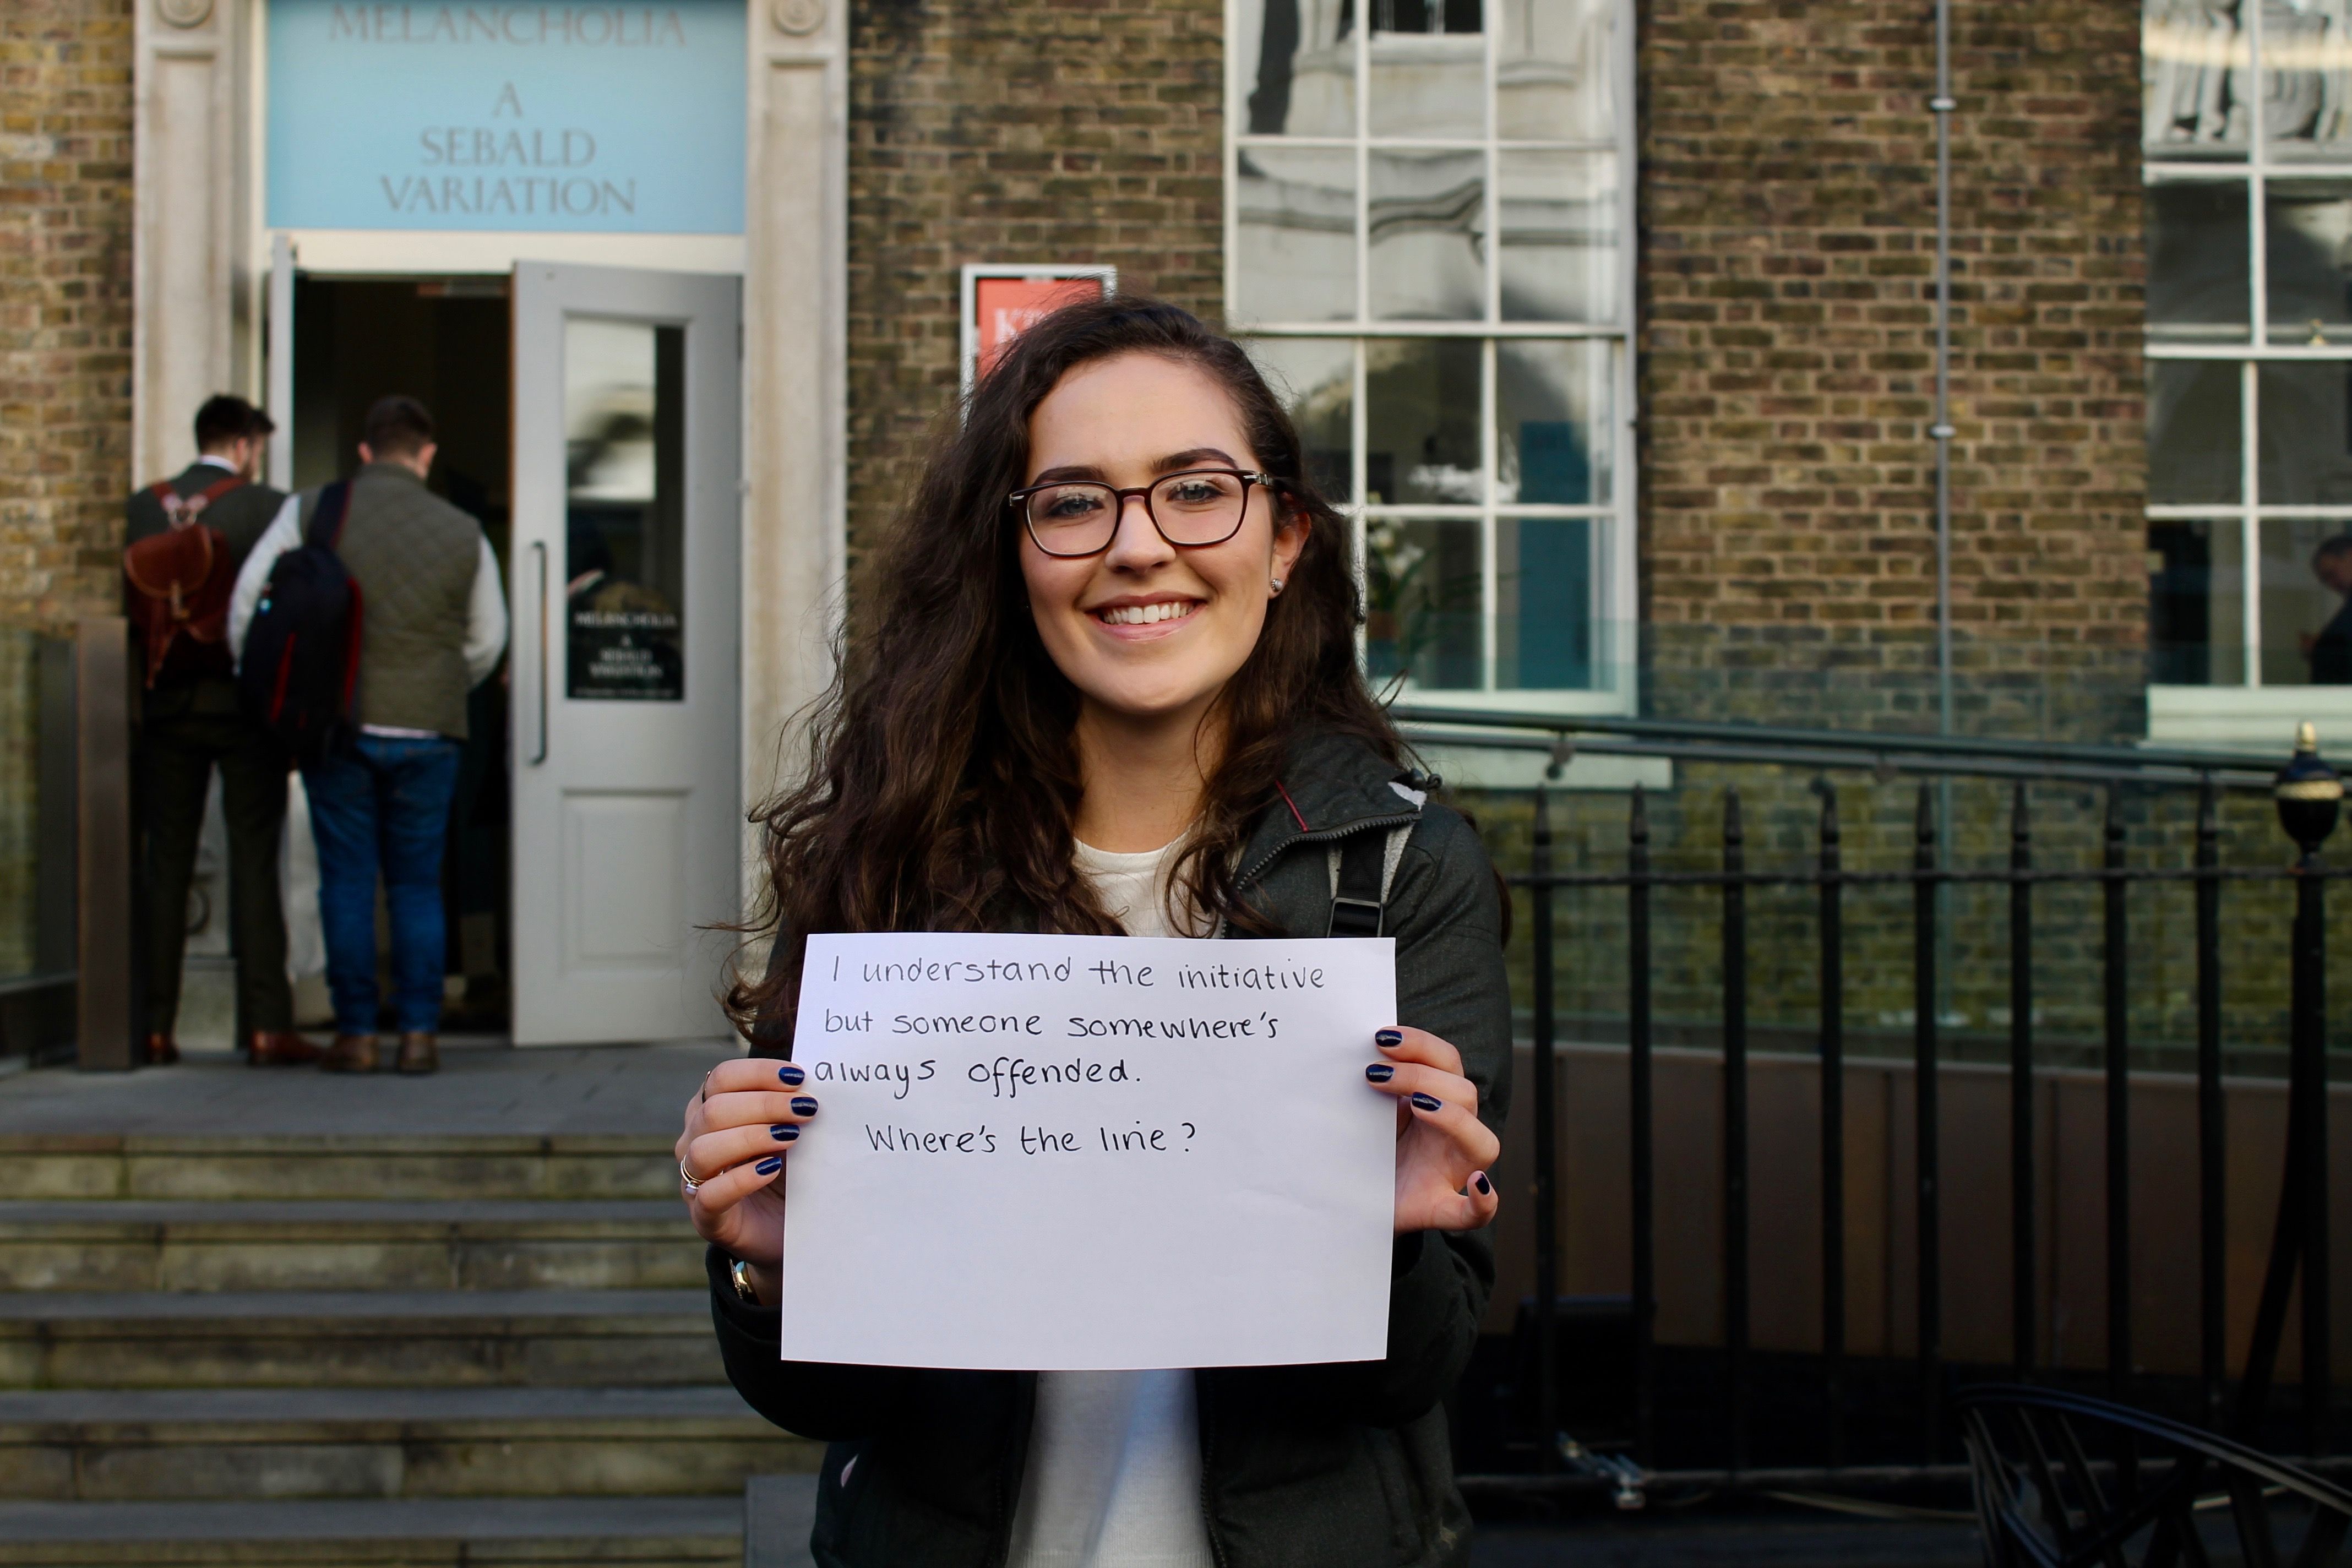 MELANCHOLIA
A
SEBALD
VARIATION
K
MELANCHOLIA
A
SEBALD
VARIATION
I understand the initiative
but someone somewhere's
always offended.
Where's the line?